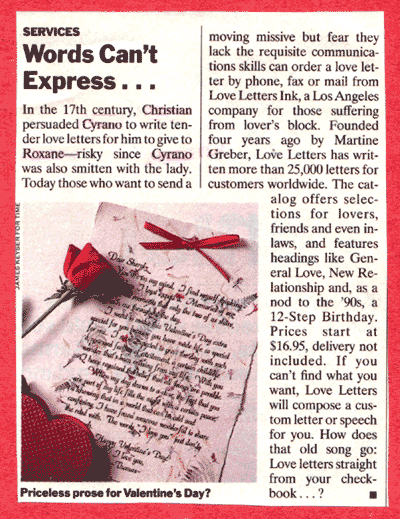 SERVICES
Words Can't
Express . . .
In the 17th century, Christian
persuaded Cyrano to write ten-
der love letters for him to give to
Roxane—risky since Cyrano
was also smitten with the lady.
Today those who want to send a
moving missive but fear they
lack the requisite communica-
tions skills can order a love let-
ter by phone, fax or mail from
Love Letters Ink, a Los Angeles
company for those suffering
from lover's block. Founded
four years ago by Martine
Greber, Love Letters has writ-
ten more than 25,000 letters for
customers worldwide. The cat-
alog offers selec-
tions for lovers,
friends and even in-
laws, and features
headings like Gen-
eral Love, New Re-
lationship and, as a
nod to the '90s, a
12-Step Birthday.
Prices start at
$16.95, delivery not
included. If you
can't find what you
want, Love Letters
will compose a cus-
tom letter or speech
for you. How does
that old song go:
Love letters straight
from your check-
book . . . ?
JAMES KEYSER FOR TIME
Priceless prose for Valentine's Day?